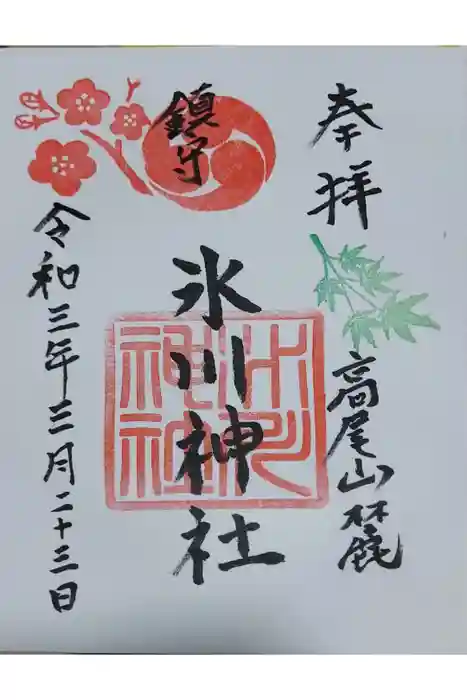 奉拝
高尾山麓
鎮守
氷川神社
氷川神社
令和三年三月二十三日